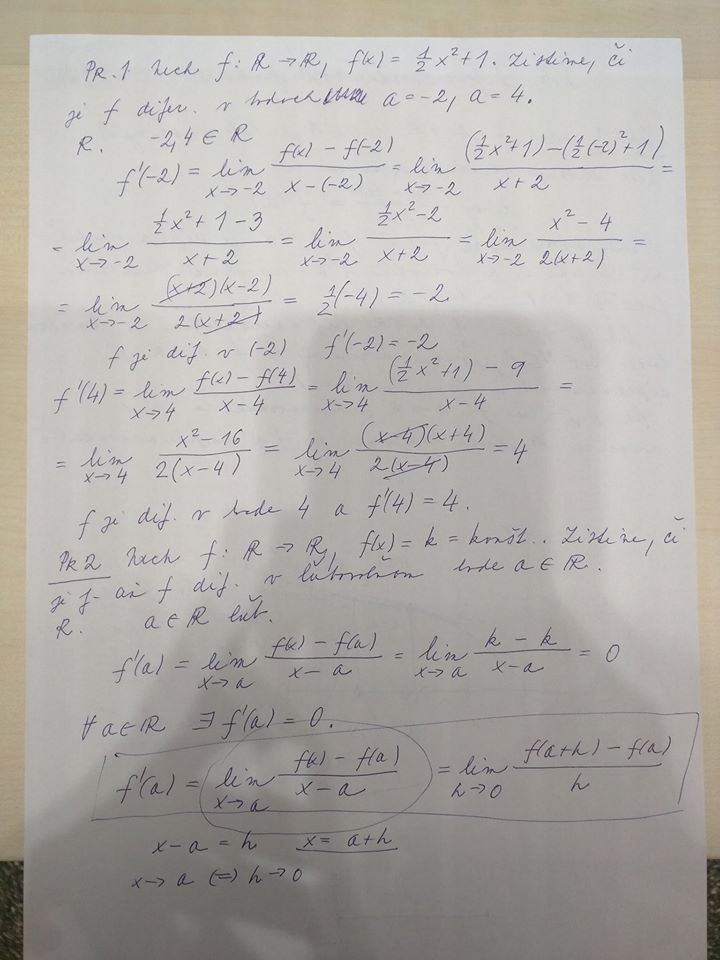 Pr. 1 Nech f: ℝ → ℝ, f(x) = 1/2 x² + 1. Zistime, či
je f difer. v bodoch a = -2, a = 4.
R. -2, 4 ∈ ℝ
f'(-2) = lim_{x→-2} (f(x) - f(-2))/(x - (-2)) = lim_{x→-2} ((1/2 x² + 1) - (1/2 (-2)² + 1))/(x + 2) =
= lim_{x→-2} (1/2 x² + 1 - 3)/(x + 2) = lim_{x→-2} (1/2 x² - 2)/(x + 2) = lim_{x→-2} (x² - 4)/(2(x + 2)) =
= lim_{x→-2} ((x+2)(x-2))/(2(x+2)) = 1/2 (-4) = -2
f je dif. v (-2) f'(-2) = -2
f'(4) = lim_{x→4} (f(x) - f(4))/(x - 4) = lim_{x→4} ((1/2 x² + 1) - 9)/(x - 4) =
= lim_{x→4} (x² - 16)/(2(x - 4)) = lim_{x→4} ((x-4)(x+4))/(2(x-4)) = 4
f je dif. v bode 4 a f'(4) = 4.
Pr. 2 Nech f: ℝ → ℝ, f(x) = k = konšt.. Zistime, či
je f dif. v ľubovoľnom bode a ∈ ℝ.
R. a ∈ ℝ ľub.
f'(a) = lim_{x→a} (f(x) - f(a))/(x - a) = lim_{x→a} (k - k)/(x - a) = 0
∀ a ∈ ℝ ∃ f'(a) = 0.
f'(a) = lim_{x→a} (f(x) - f(a))/(x - a) = lim_{h→0} (f(a+h) - f(a))/h
x - a = h x = a + h
x → a (=) h → 0